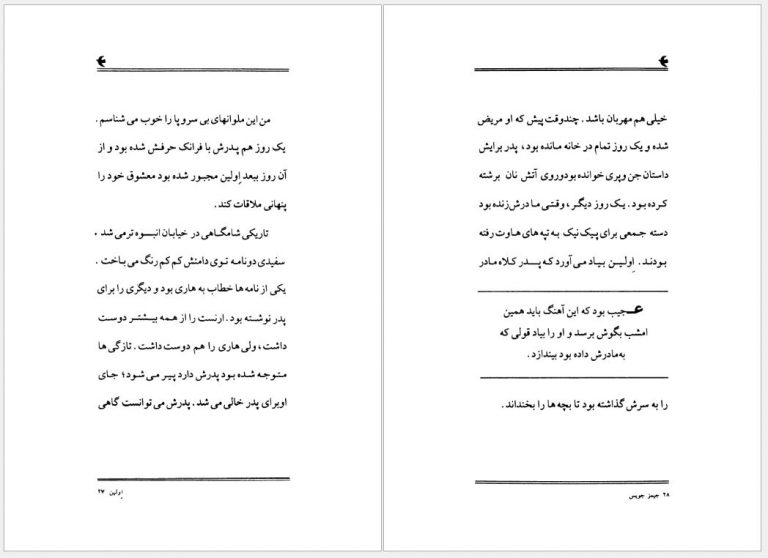 من این ملوانهای بی سروپا را خوب می شناسم .
یک روز هم پدرش با فرانک حرفش شده بود و از
آن روز ببعد اِولین مجبور شده بود معشوق خود را
پنهانی ملاقات کند .
تاریکی شامگاهی در خیابان انبوه ترمی شد .
سفیدی دونامه توی دامنش کم کم رنگ می باخت .
یکی از نامه ها خطاب به هاری بود و دیگری را برای
پدر نوشته بود . ارنست را از همه بیشتر دوست
داشت ، ولی هاری را هم دوست داشت . تازگی ها
متوجه شده بود پدرش دارد پیر می شود ؛ جای
اوبرای پدر خالی می شد . پدرش می توانست گاهی
اِولین ۲۷
خیلی هم مهربان باشد . چندوقت پیش که او مریض
شده و یک روز تمام در خانه مانده بود ، پدر برایش
داستان جن وپری خوانده بودوروی آتش نان برشته
کرده بود . یک روز دیگر ، وقتی مادرش زنده بود
دسته جمعی برای پیک نیک به تپه های هاوت رفته
بودند . اِولین بیاد می آورد که پدر کلاه مادر
عجیب بود که این آهنگ باید همین
امشب بگوش برسد و او را بیاد قولی که
به‌مادرش داده بود بیندازد .
را به سرش گذاشته بود تا بچه ها را بخنداند .
۲۸ جیمز جویس